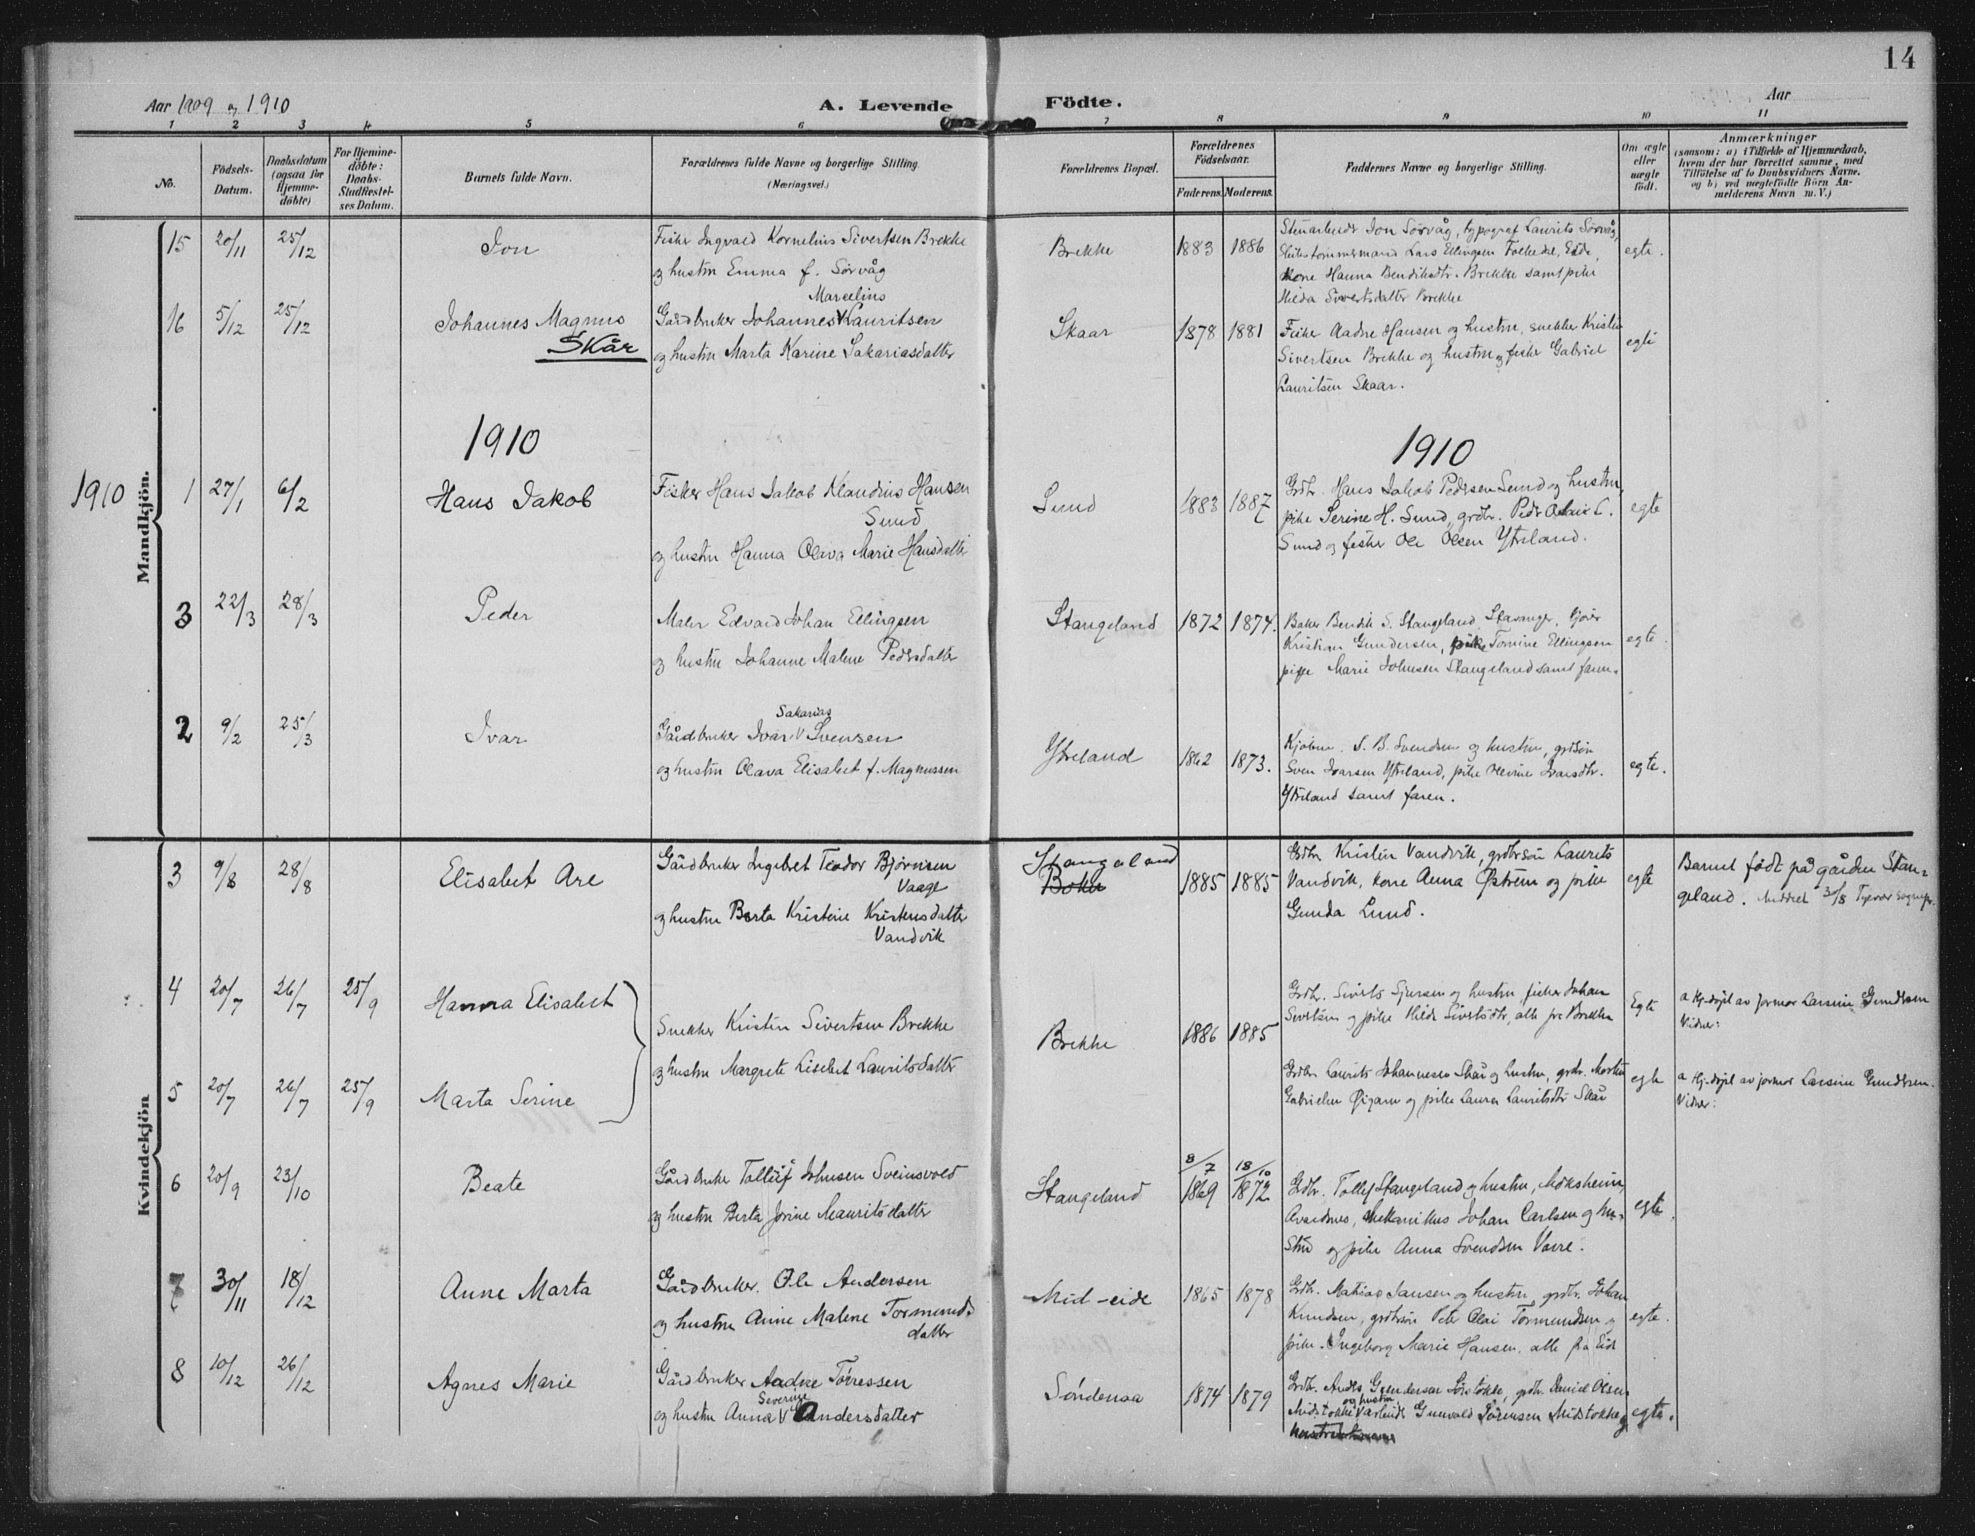 14
Aar 1909 og 1910
A. Levende Födte.
Aar
1 2 3 4 5 6 7 8 9 10 11
No.
Födsels-Datum.
Daabsdatum (ogsaa for Hjemme-döbte)
For Hjemme-döbte: Daabs-Stadfæstel-ses Datum.
Barnets fulde Navn.
Forældrenes fulde Navne og borgerlige Stilling.
(Næringsvei.)
Forældrenes Bopæl.
Forældrenes Födselsaar.
Faderens. Moderens.
Faddernes Navne og borgerlige Stilling.
Om ægte eller uægte født.
Anmærkninger
(saasom: a) i Tilfælde af Hjemmedaab, hvem der har forrettet samme, med Tilføielse af to Daabsvidners Navne, og b) ved uægtefødte Börn An-melderens Navn m. V.)
Mandkjön.
15 20/11 25/12 Jon
Fisker Ingvald Kornelius Sivertsen Brekke
og hustru Emma f. Sørvåg
Brekke 1883 1886
Stenarbeider Jon Sørvåg, typograf Laurits Sørvåg,
Lars Ellingsen Eide,
kone Hanna Bendiksdtr. Brekke samt pike
Hilda Sivertsdatter Brekke
egte.
16 5/12 25/12 Johannes Magnus
Skår
Marcelius
Gårdbruker Johannes V Lauritsen
og hustru Marta Karine Sakariasdatter
Skaar 1878 1881
Fisker Aadne Hansen og hustru, snekker Kristen
Sivertsen Brekke og hustru og fisker Gabriel
Lauritsen Skaar.
egte
1910
1910
1910 1 27/1 6/2 Hans Jakob
Fisker Hans Jakob Klaudius Hansen
Sund
og hustru Hanna Olava Marie Hansdatter
Sund 1883 1887
Grdbr. Hans Jakob Pedersen Sund og hustru,
pike Serine H. Sund, grdbr. Peder
Sund og fisker Ole Olsen Ytreland.
egte
3 22/3 28/3 Peder
Maler Edvard Johan Ellingsen
og hustru Johanne Malene Pedersdatter
Stangeland 1872 1874.
Baker Bendik S. Stangeland, Stavanger,
Kristian Gundersen, pike Tomine Ellingsen
pige Marie Johnsen Stangeland samt faren.
egte.
2 9/2 25/3 Ivar
Sakarias
Gårdbruker Ivar V Svensen
og hustru Olava Elisabet f. Magnussen
Ytreland 1862 1873.
Kjøbm. S. B. Svendsen og hustru, grdsøn
Sven Ivarsen Ytreland, pike Olevine Ivarsdtr.
Ytreland samt faren.
egte.
Kvindekjön
3 9/8 28/8 Elisabet Are
Gårdbruker Ingebret Teodor Bjørnsen
Vaage
og hustru Berta Kristine Kristensdatter
Vandvik
Stangeland
Bokn
1885 1885
Grdbr Kristen Vandvik, grdbrsøn Laurits
Vandvik, kone Anna Østrem og pike
Gunda Lund.
egte
Barnet født på gården Stan-
geland. Meddelt 30/8 Tysvær sognepr.
4 20/7 26/7 25/9 Hanna Elisabet
Snekker Kristen Sivertsen Brekke
og hustru Margrete Lisebet Lauritsdatter
Brekke 1886 1885
Grdbr. Siverts Sjursen og hustru, fisker Johan
Sivertsen og pike Hilda Sivertsdtr, alle fra Brekke
Egte
a Hj.døpt av jormor Larsine Gundersen
Vidner:
5 20/7 26/7 25/9 Marta Serine
Grdbr Laurits Johannesen Skår og hustru, grdbr. Morten
Gabrielsen Øigarn og pike Laura Lauritsdtr Skår
egte
a Hj.døpt av jormor Larsine Gundersen.
Vidner:
6 20/9 23/10 Beate
Gårdbruker Tollef Johnsen Sveinsvold
og hustru Berta Jorine Mauritsdatter
Stangeland 8/7 1869 18/10 1872
Grdbr. Tollef Stangeland og hustru, Møksheim,
Avaldsnes, mekanikus Johan Carlsen og hu-
stru og pike Anna Svendsen Varre.
egte.
7 30/11 18/12 Anne Marta
Gårdbruker Ole Andersen
og hustru Anne Malene Tormunds-
datter
Mid-eide 1865 1878
Grdbr. Matias Jansen og hustru, grdbr. Johan
Knudsen, grdbrsøn Peter Olai Tormundsen og
pike Ingeborg Marie Hansen alle fra Eide
egte.
8 10/12 26/12 Agnes Marie
Gårdbruker Aadne Tørressen
Severine
og hustru Anna V Andersdatter
Søndenaa 1874 1879
Grdbr. Anders Gundersen Sørstokke, grdbr. Daniel Olsen
og hustru
Midstokke V Gunvald Sørensen Midstokke og
egte.